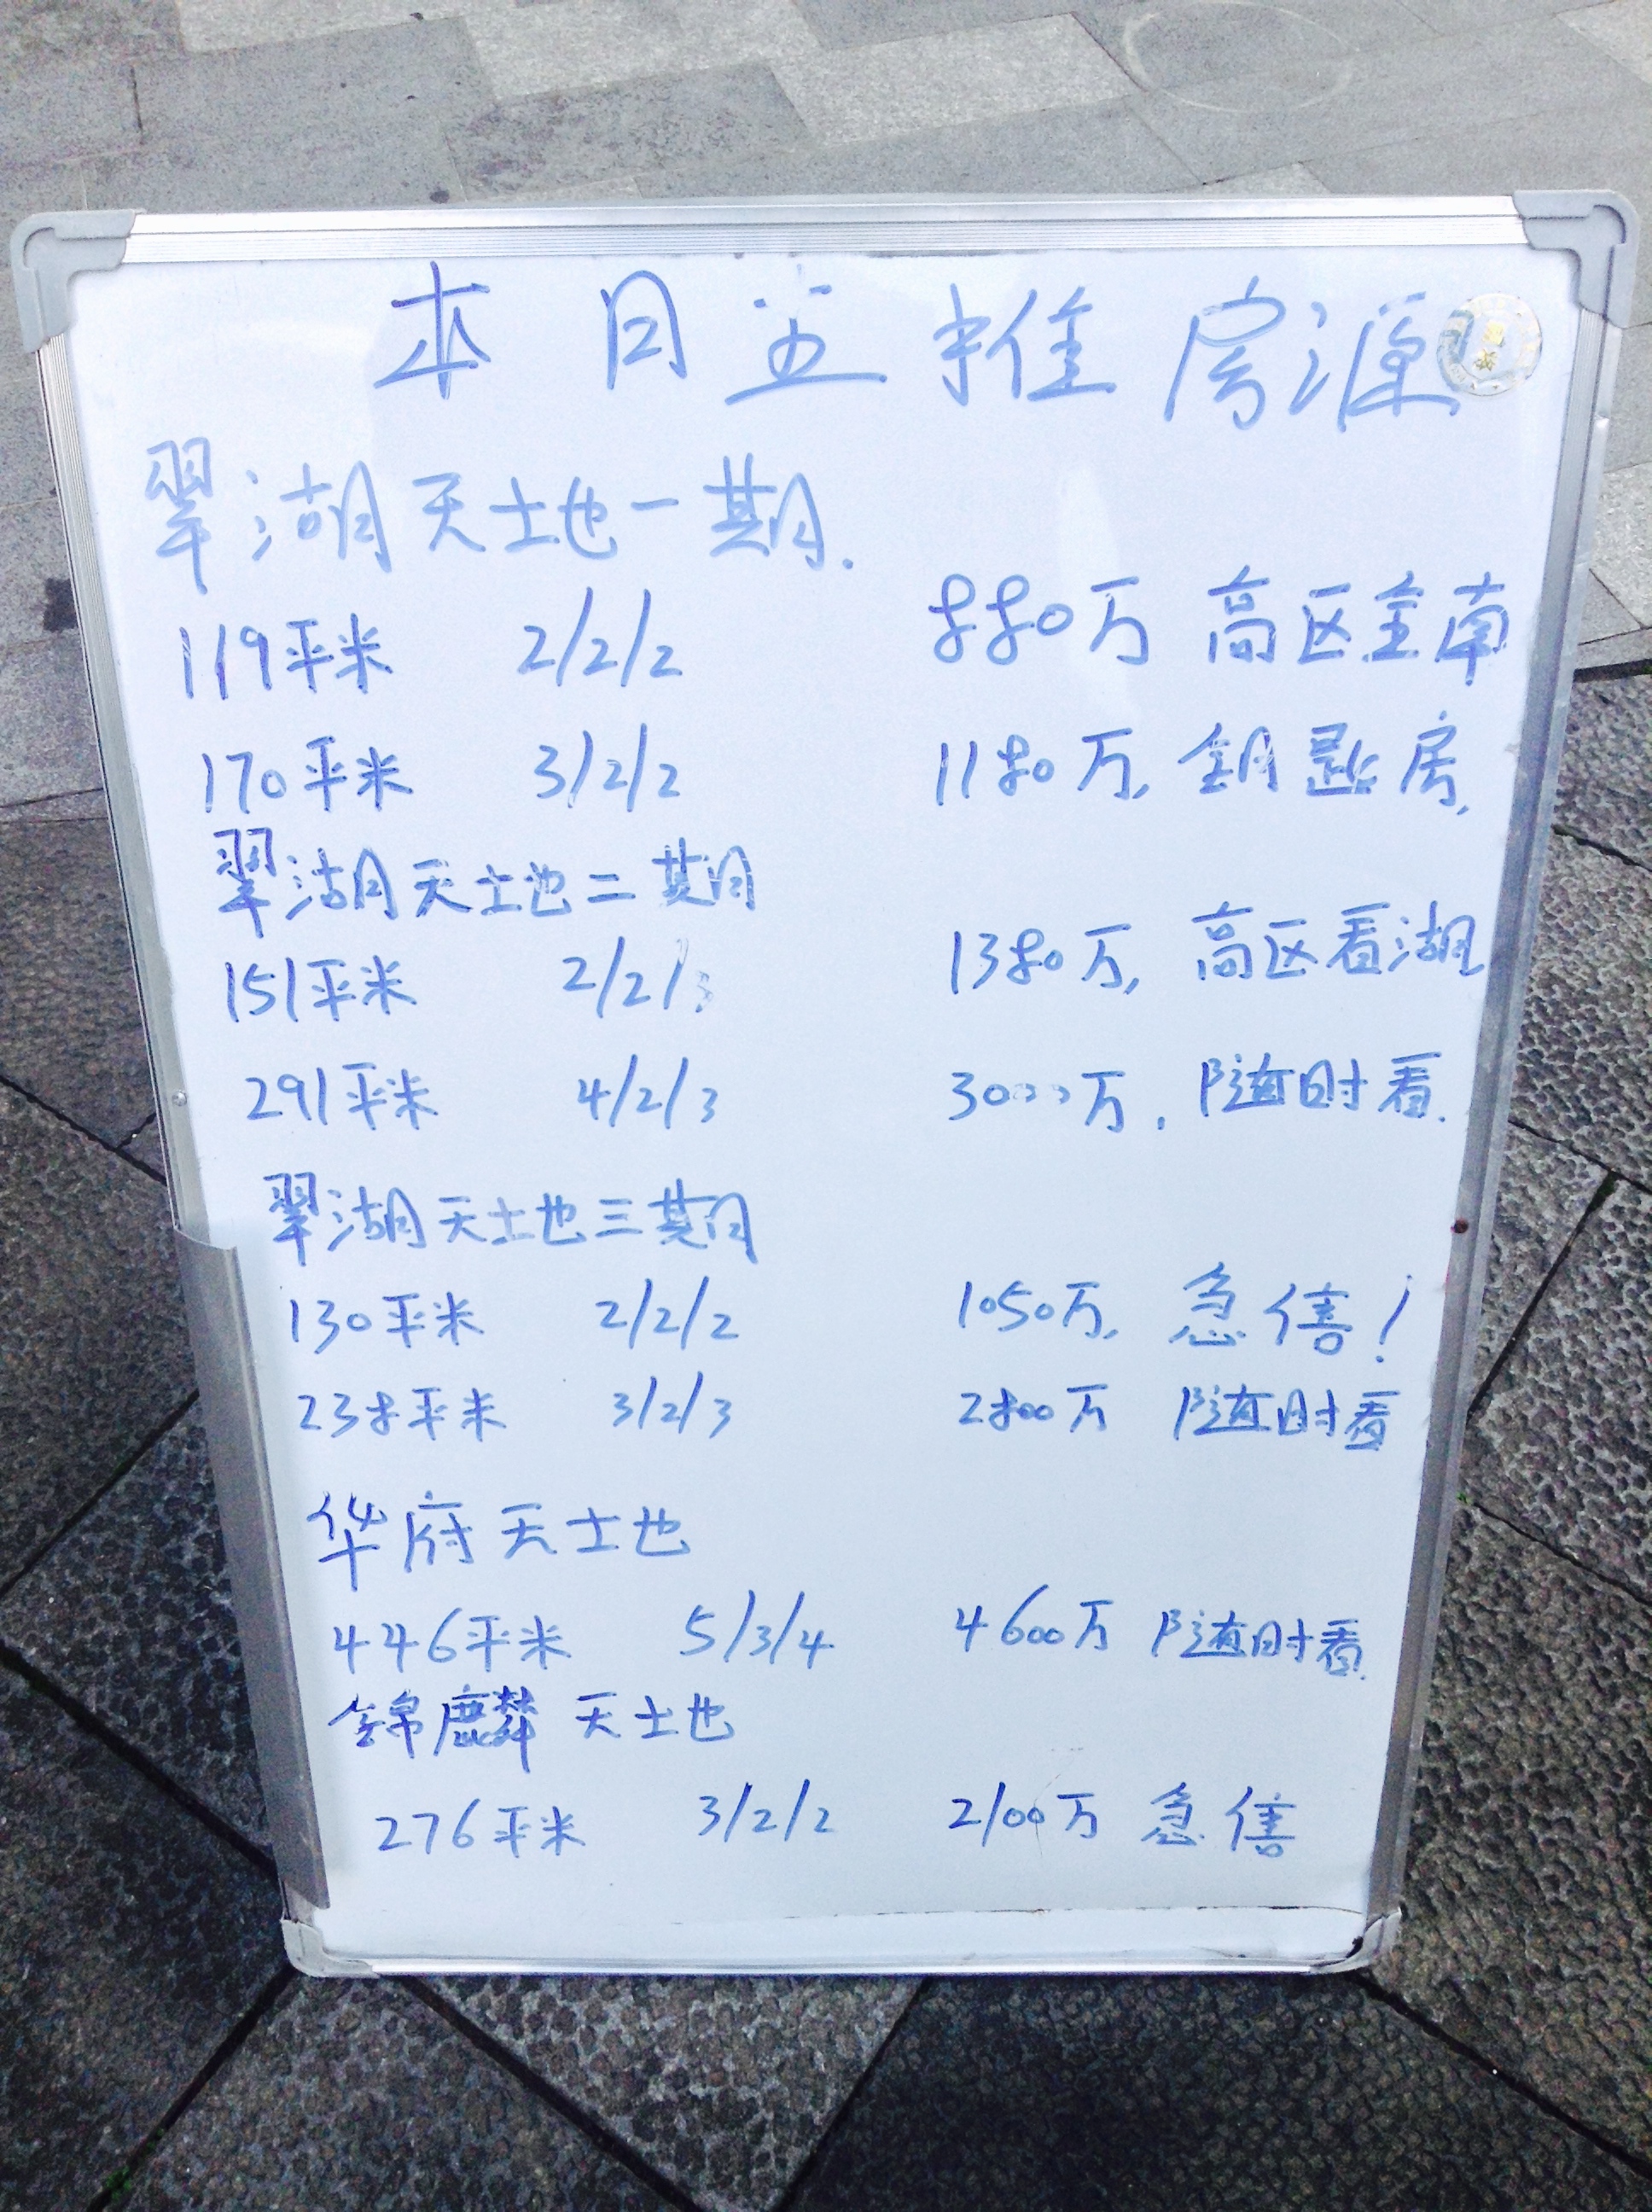 本月主推房源
翠湖天地一期.
119平米 2/2/2 880万 高区全南
170平米 3/2/2 1180万, 钥匙房,
翠湖天地二期
151平米 2/2/ 1380万, 高区看湖
291平米 4/2/3 3000万. 随时看.
翠湖天地三期
130平米 2/2/2 1050万, 急售!
238平米 3/2/3 2800万 随时看
华府天地
446平米 5/3/4 4600万 随时看.
锦麟天地
276平米 3/2/2 2100万 急售